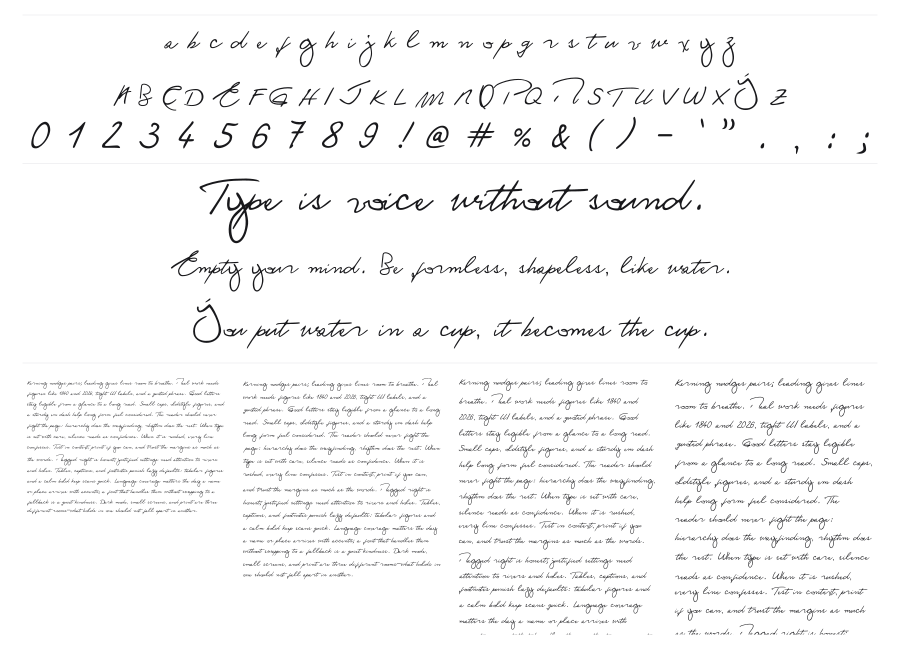 a b c d e f g h i j k l m n o p q r s t u v w x y z
A B C D E F G H I J K L M N O P Q R S T U V W X Y Z
0 1 2 3 4 5 6 7 8 9 ! @ # % & ( ) - ' " . , : ;
Type is voice without sound.
Empty your mind. Be formless, shapeless, like water.
You put water in a cup, it becomes the cup.
Kerning nudges pairs; leading gives lines room to breathe. Real work needs
figures like 1840 and 2026, tight UI labels, and a quoted phrase. Good letters
stay legible from a glance to a long read. Small caps, oldstyle figures, and
a sturdy em dash help long form feel considered. The reader should never
fight the page: hierarchy does the wayfinding, rhythm does the rest. When type
is set with care, silence reads as confidence. When it is rushed, every line
confesses. Test in context, print if you can, and trust the margins as much as
the words. Ragged right is honest; justified settings need attention to rivers
and holes. Tables, captions, and footnotes punish lazy defaults: tabular figures
and a calm bold keep scans quick. Language coverage matters the day a name
or place arrives with accents; a font that handles them without swapping to a
fallback is a quiet kindness. Dark mode, small screens, and print are three
different rooms—what holds in one should not fall apart in another.
Kerning nudges pairs; leading gives lines room to breathe. Real
work needs figures like 1840 and 2026, tight UI labels, and a
quoted phrase. Good letters stay legible from a glance to a long
read. Small caps, oldstyle figures, and a sturdy em dash help
long form feel considered. The reader should never fight the
page: hierarchy does the wayfinding, rhythm does the rest. When
type is set with care, silence reads as confidence. When it is
rushed, every line confesses. Test in context, print if you can,
and trust the margins as much as the words. Ragged right is
honest; justified settings need attention to rivers and holes. Tables,
captions, and footnotes punish lazy defaults: tabular figures and
a calm bold keep scans quick. Language coverage matters the day
a name or place arrives with accents; a font that handles them
without swapping to a fallback is a quiet kindness. Dark mode,
small screens, and print are three different rooms—what holds in
one should not fall apart in another.
Kerning nudges pairs; leading gives lines room to
breathe. Real work needs figures like 1840 and
2026, tight UI labels, and a quoted phrase. Good
letters stay legible from a glance to a long read.
Small caps, oldstyle figures, and a sturdy em dash
help long form feel considered. The reader should
never fight the page: hierarchy does the wayfinding,
rhythm does the rest. When type is set with care,
silence reads as confidence. When it is rushed,
every line confesses. Test in context, print if you
can, and trust the margins as much as the words.
Ragged right is honest; justified settings need
attention to rivers and holes. Tables, captions, and
footnotes punish lazy defaults: tabular figures and
a calm bold keep scans quick. Language coverage
matters the day a name or place arrives with
Kerning nudges pairs; leading gives lines
room to breathe. Real work needs figures
like 1840 and 2026, tight UI labels, and a
quoted phrase. Good letters stay legible
from a glance to a long read. Small caps,
oldstyle figures, and a sturdy em dash
help long form feel considered. The
reader should never fight the page:
hierarchy does the wayfinding, rhythm does
the rest. When type is set with care, silence
reads as confidence. When it is rushed,
every line confesses. Test in context, print
if you can, and trust the margins as much
as the words. Ragged right is honest;